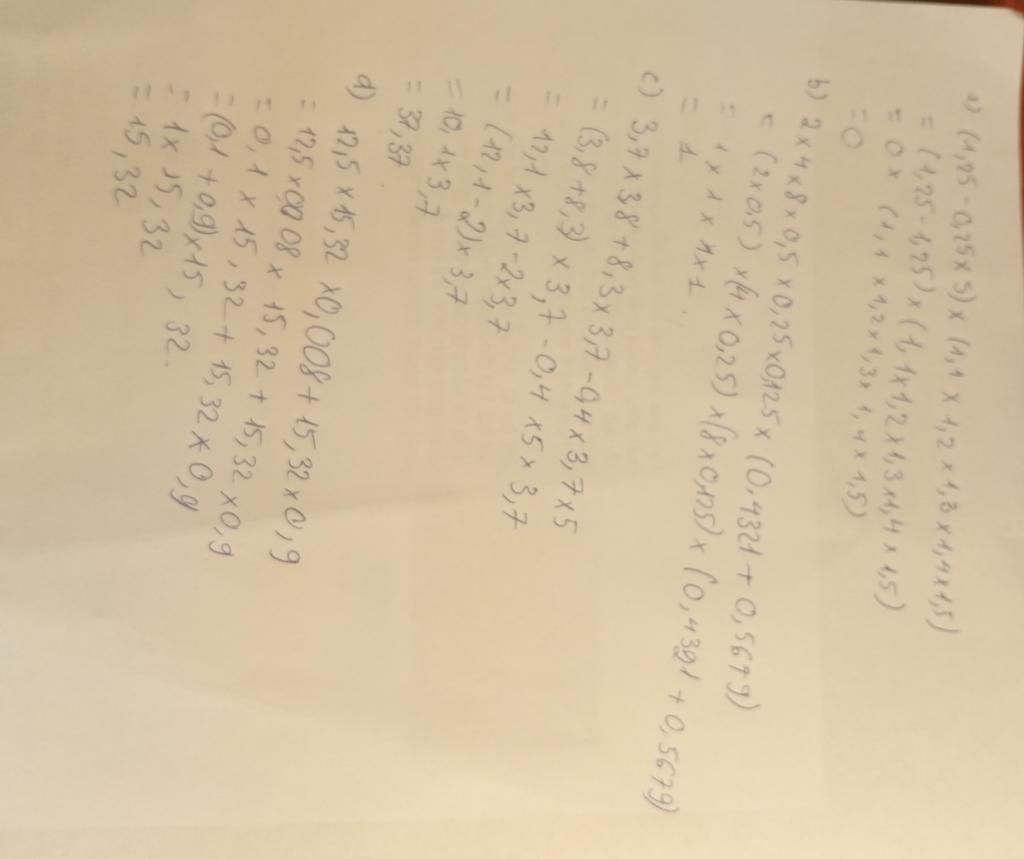 a) (1,25 - 0,25 x 5) x (1,1 x 1,2 x 1,3 x 1,4 x 1,5)
= (1,25 - 1,25) x (1,1 x 1,2 x 1,3 x 1,4 x 1,5)
= 0 x (1,1 x 1,2 x 1,3 x 1,4 x 1,5)
= 0
b) 2 x 4 x 8 x 0,5 x 0,25 x 0,125 x (0,4321 + 0,5679)
= (2 x 0,5) x (4 x 0,25) x (8 x 0,125) x (0,4321 + 0,5679)
= 1 x 1 x 1 x 1
= 1
c) 3,7 x 3,8 + 8,3 x 3,7 - 0,4 x 3,7 x 5
= (3,8 + 8,3) x 3,7 - 0,4 x 5 x 3,7
= 12,1 x 3,7 - 2 x 3,7
= (12,1 - 2) x 3,7
= 10,1 x 3,7
= 37,37
d) 12,5 x 15,32 x 0,008 + 15,32 x 0,9
= 12,5 x 0,008 x 15,32 + 15,32 x 0,9
= 0,1 x 15,32 + 15,32 x 0,9
= (0,1 + 0,9) x 15,32
= 1 x 15,32
= 15,32